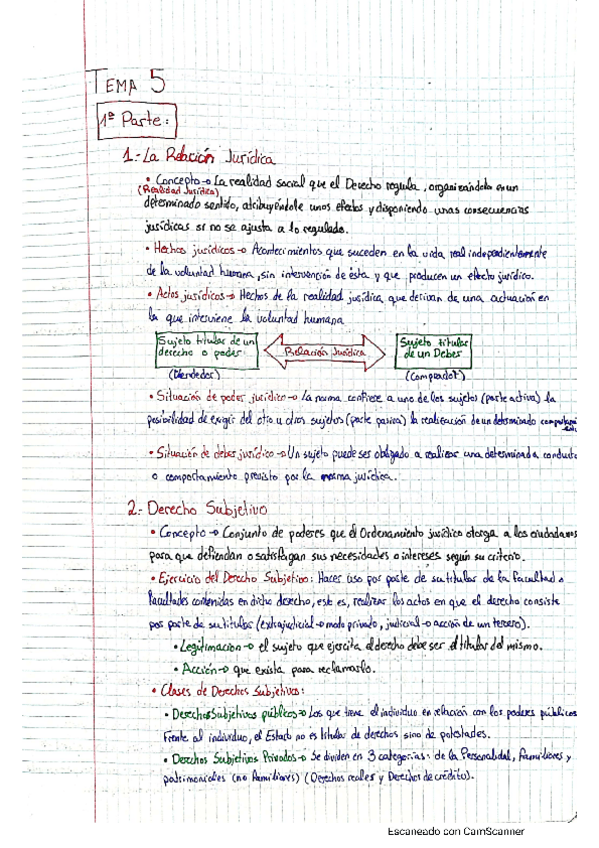 TEMA 5
1ª Parte:
1.- La Relación Jurídica
• Concepto → La realidad social que el Derecho regula, organizándola en un
(Realidad Jurídica)
determinado sentido, atribuyéndole unos efectos y disponiendo unas consecuencias
jurídicas si no se ajusta a lo regulado.
• Hechos jurídicos → Acontecimientos que suceden en la vida real independientemente
de la voluntad humana, sin intervención de ésta y que producen un efecto jurídico.
• Actos jurídicos → Hechos de la realidad jurídica que derivan de una actuación en
la que interviene la voluntad humana
Sujeto titular de un derecho o poder
Relación Jurídica
Sujeto titular de un Deber
(Vendedor)
(Comprador)
• Situación de poder jurídico → La norma confiere a uno de los sujetos (parte activa) la
posibilidad de exigir del otro u otros sujetos (parte pasiva) la realización de un determinado
• Situación de deber jurídico → Un sujeto puede ser obligado a realizar una determinada conducta
o comportamiento previsto por la norma jurídica.
2.- Derecho Subjetivo
• Concepto → Conjunto de poderes que el Ordenamiento jurídico otorga a los ciudadanos
para que defiendan o satisfagan sus necesidades o intereses según su criterio.
• Ejercicio del Derecho Subjetivo: Hacer uso por parte de su titular de la facultad o
facultades contenidas en dicho derecho, esto es, realizar los actos en que el derecho consiste
por parte de su titular (extrajudicial → modo privado, judicial → acción de un tercero).
• Legitimación → el sujeto que ejercita el derecho debe ser el titular del mismo.
• Acción → que exista para reclamarlo.
• Clases de Derechos Subjetivos:
• Derechos Subjetivos públicos → Los que tiene el individuo en relación con los poderes públicos
Frente al individuo, el Estado no es titular de derechos sino de potestades.
• Derechos Subjetivos Privados → Se dividen en 3 categorías: de la Personalidad, familiares y
patrimoniales (no familiares) (Derechos reales y Derechos de crédito).
Escaneado con CamScanner